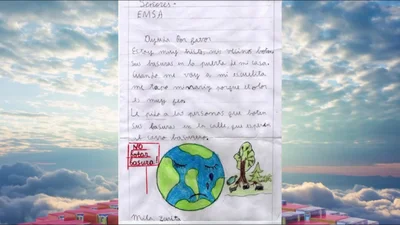 Señores.
EMSA
Ayuda por favor
Estoy muy triste, mi vesino botan
sus basuras en la puerta de mi casa.
cuando me voy a mi escuelita
me tapo mi nariz porque el olor
es muy feo.
Le pido a las personas que boten
las basuras en la calle, que esperen
al carro basurero.
NO
botar
basura!
Mila